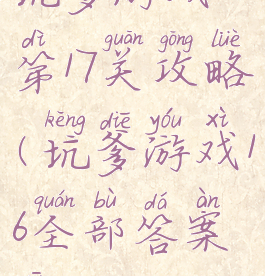 坑爹游戏
dì guān gōng lüè
第17关攻略
kēng diē yóu xì
(坑爹游戏1
quán bù dá àn
6全部答案